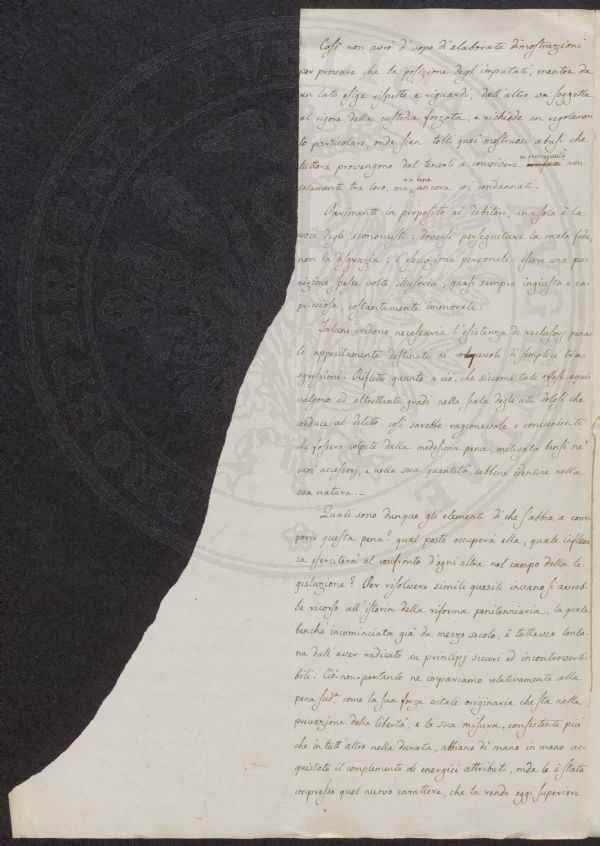 Così non avrò d'uopo di elaborate dimostrazioni
per provare che la posizione degl'imputati, mentre da
un lato esige rispetto e riguardi, dall'altro va soggetta
al rigore della custodia forzata, e richiede un regolamen
to particolare, onde sien tolti quei mostruosi abusi che
tuttora provengono dal tenerli a convivere in promiscuità non
solamente tra loro, ma sì bene ancora coi condannati.
Parimente in proposito ai debitori, una sola è la
voce degli economisti: doversi perseguitare la mala fede,
non la disgrazia; l'esecuzione personale essere una pu
nizione spesse volte illusoria, quasi sempre ingiusta e ca
pricciosa, costantemente immorale.
Taluni credono necessaria l'esistenza di reclusorj pena
li appositamente destinati ai colpevoli di semplice tra
sgressioni. Rifletto quanto a ciò, che siccome tali offese equi
valgono ad altrettanti gradi nella scala degli atti dolosi che
conduce al delitto, così sarebbe ragionevole e conveniente
che fossero colpite dalla medesima pena, mitigata bensì ne'
suoi accessorj, e nella sua quantità, sebbene identica nella
sua natura. —
Quale sono dunque gli elementi di che s'abbia a com
porre questa pena? qual posto occuperà ella, quale influen
za eserciterà al confronto d'ogni altra nel campo della le
gislazione? Per risolvere simile quesiti invano si avreb
be ricorso all'istoria della riforma penitenziaria, la quale
benchè incominciata già da mezzo secolo, è tuttavia lonta
na dall'aver radicato su principj sicuri ed incontroverti
bili. Ciò-non-pertanto ne impariamo relativamente alla
pena sud.ª come la sua forza vitale originaria che sta nella
privazione della libertà, e la sua misura, consistente più
che in tutt'altro nella durata, abbiano di mano in mano ac
quistato il complemento di energici attributi, onde le è stato
impresso quel nuovo carattere, che la rende oggi superiore